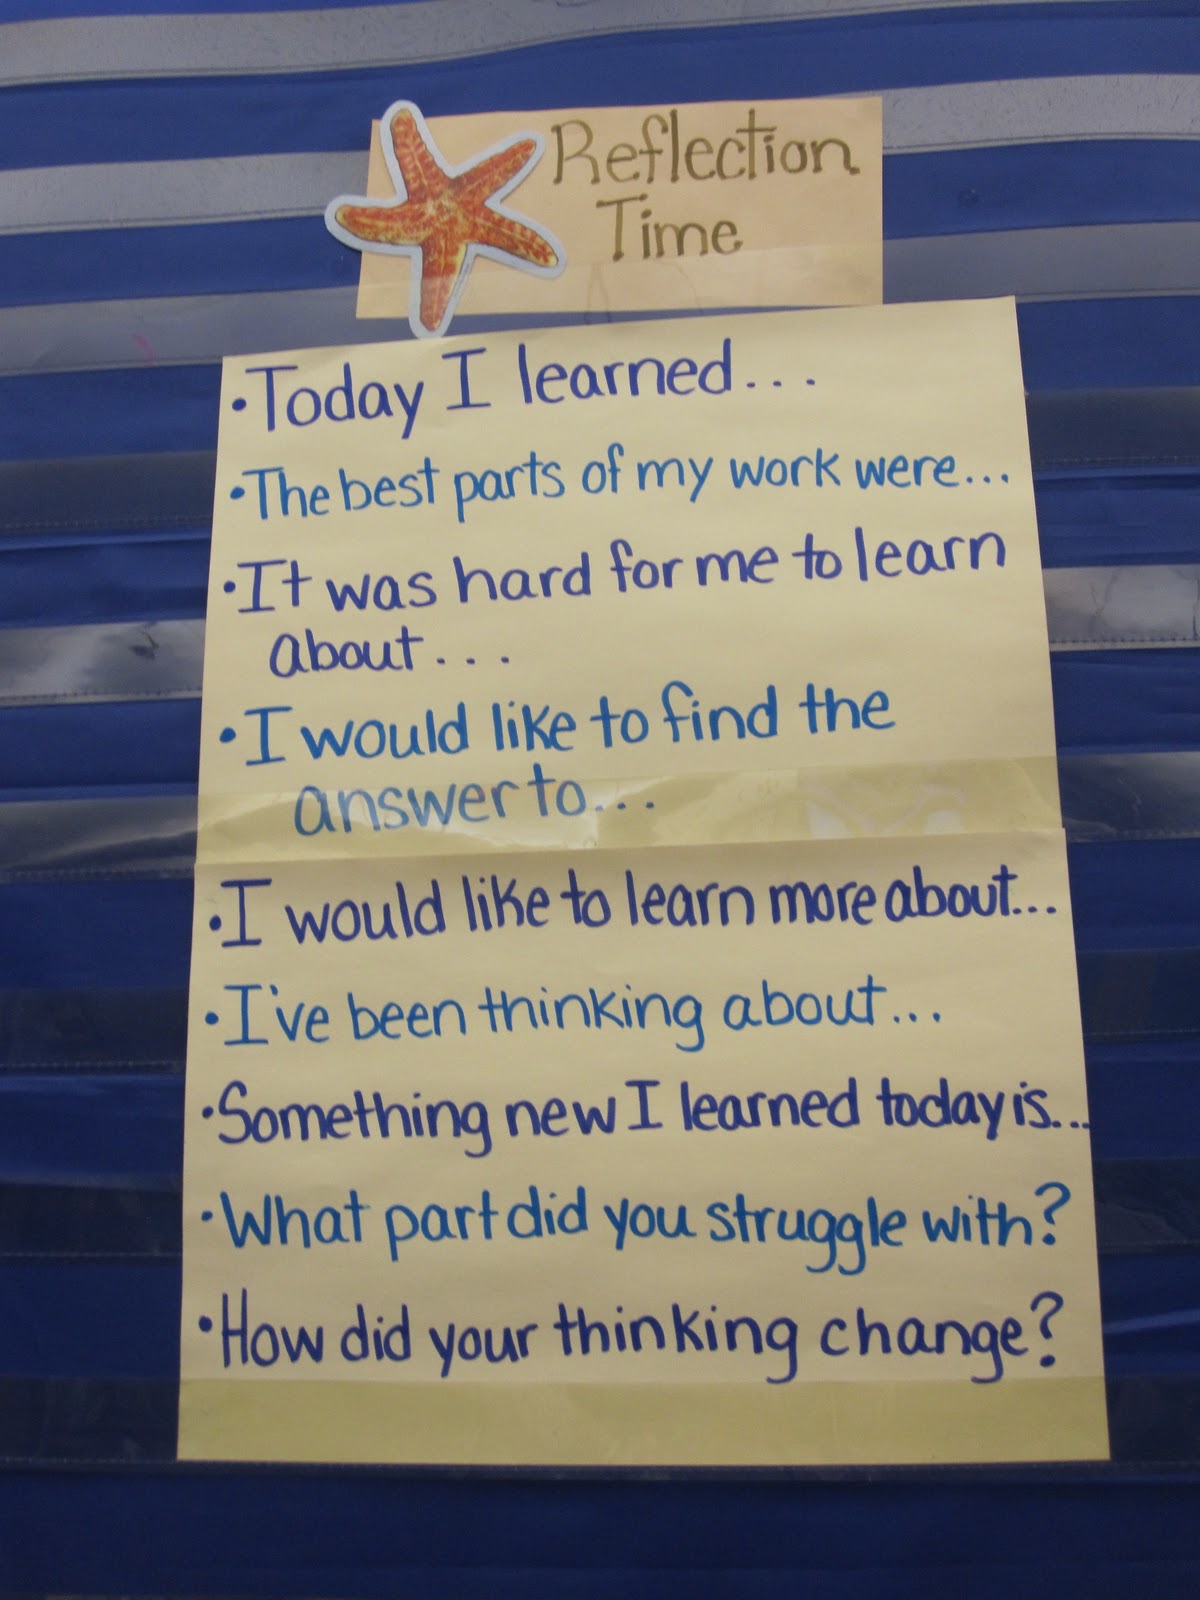 Reflection
Time
•Today I learned...
•The best parts of my work were...
•It was hard for me to learn
about...
•I would like to find the
answer to...
•I would like to learn more about...
•I've been thinking about...
•Something new I learned today is...
•What part did you struggle with?
•How did your thinking change?